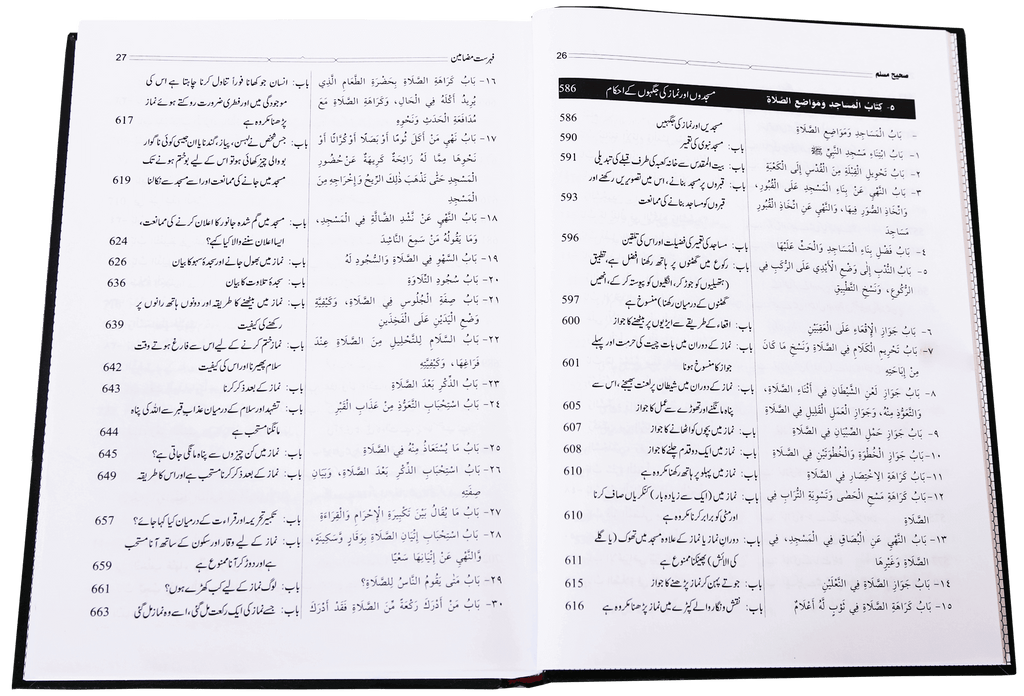 26
صحیح مسلم
٥- كتابُ المساجد ومواضع الصّلاة
مسجدوں اور نماز کی جگہوں کے احکام
586
- بَابُ الْمَسَاجِدِ وَمَوَاضِعِ الصَّلَاةِ
مسجدیں اور نماز کی جگہیں
586
١- بَابُ ابْتِنَاءِ مَسْجِدِ النَّبِيِّ ﷺ
باب: مسجد نبوی کی تعمیر
590
٢- بَابُ تَحْوِيلِ الْقِبْلَةِ مِنَ الْقُدْسِ إِلَى الْكَعْبَةِ
باب: بیت المقدس سے خانہ کعبہ کی طرف قبلے کی تبدیلی
591
٣- بَابُ النَّهْيِ عَنْ بِنَاءِ الْمَسْجِدِ عَلَى الْقُبُورِ،
وَاتِّخَاذِ الصُّوَرِ فِيهَا، وَالنَّهْيِ عَنِ اتِّخَاذِ الْقُبُورِ
مَسَاجِدَ
باب: قبروں پر مسجد بنانے، اس میں تصویریں رکھنے اور
قبروں کو مساجد بنانے کی ممانعت
593
٤- بَابُ فَضْلِ بِنَاءِ الْمَسَاجِدِ وَالْحَثِّ عَلَيْهَا
باب: مساجد کی تعمیر کی فضیلت اور اس کی تلقین
596
٥- بَابُ النَّدْبِ إِلَى وَضْعِ الْأَيْدِي عَلَى الرُّكَبِ فِي
الرُّكُوعِ، وَنَسْخِ التَّطْبِيقِ
باب: رکوع میں گھٹنوں پر ہاتھ رکھنا افضل ہے، تطبیق
(ہتھیلیوں کو جوڑ کر، انگلیوں کو پیوستہ کر کے، انھیں
گھٹنوں کے درمیان رکھنا) منسوخ ہے
597
٦- بَابُ جَوَازِ الْإِقْعَاءِ عَلَى الْعَقِبَيْنِ
باب: اقعاء کے طریقے سے ایڑیوں پر بیٹھنے کا جواز
600
٧- بَابُ تَحْرِيمِ الْكَلَامِ فِي الصَّلَاةِ وَنَسْخِ مَا كَانَ
مِنْ إِبَاحَتِهِ
باب: نماز کے دوران میں بات چیت کی حرمت اور پہلے
جواز کا منسوخ ہونا
601
٨- بَابُ جَوَازِ لَعْنِ الشَّيْطَانِ فِي أَثْنَاءِ الصَّلَاةِ،
وَالتَّعَوُّذِ مِنْهُ، وَجَوَازِ الْعَمَلِ الْقَلِيلِ فِي الصَّلَاةِ
باب: نماز کے دوران میں شیطان پر لعنت بھیجنے، اس سے
پناہ مانگنے اور تھوڑے سے عمل کا جواز
605
٩- بَابُ جَوَازِ حَمْلِ الصِّبْيَانِ فِي الصَّلَاةِ
باب: نماز میں بچوں کو اٹھانے کا جواز
607
١٠- بَابُ جَوَازِ الْخُطْوَةِ وَالْخُطْوَتَيْنِ فِي الصَّلَاةِ
باب: نماز میں ایک دو قدم چلنے کا جواز
608
١١- بَابُ كَرَاهَةِ الِاخْتِصَارِ فِي الصَّلَاةِ
باب: نماز میں پہلو پر ہاتھ رکھنا مکروہ ہے
610
١٢- بَابُ كَرَاهَةِ مَسْحِ الْحَصَى وَتَسْوِيَةِ التُّرَابِ فِي
الصَّلَاةِ
باب: نماز میں (ایک سے زیادہ بار) کنکریاں صاف کرنا
اور مٹی کو برابر کرنا مکروہ ہے
610
١٣- بَابُ النَّهْيِ عَنِ الْبُصَاقِ فِي الْمَسْجِدِ، فِي
الصَّلَاةِ وَغَيْرِهَا
باب: دوران نماز یا نماز کے علاوہ مسجد میں تھوک (یا گلے
کی الائش) پھینکنا ممنوع ہے
611
١٤- بَابُ جَوَازِ الصَّلَاةِ فِي النَّعْلَيْنِ
باب: جوتے پہن کر نماز پڑھنے کا جواز
615
١٥- بَابُ كَرَاهَةِ الصَّلَاةِ فِي ثَوْبٍ لَهُ أَعْلَامٌ
باب: نقش و نگار والے کپڑے میں نماز پڑھنا مکروہ ہے
616
فہرست مضامین
27
١٦- بَابُ كَرَاهَةِ الصَّلَاةِ بِحَضْرَةِ الطَّعَامِ الَّذِي
يُرِيدُ أَكْلَهُ فِي الْحَالِ، وَكَرَاهَةِ الصَّلَاةِ مَعَ
مُدَافَعَةِ الْحَدَثِ وَنَحْوِهِ
باب: انسان جو کھانا فوراً تناول کرنا چاہتا ہے اس کی
موجودگی میں اور فطری ضرورت روکتے ہوئے نماز
پڑھنا مکروہ ہے
617
١٧- بَابُ نَهْيِ مَنْ أَكَلَ ثُومًا أَوْ بَصَلًا أَوْ كُرَّاثًا أَوْ
نَحْوَهَا مِمَّا لَهُ رَائِحَةٌ كَرِيهَةٌ عَنْ حُضُورِ
الْمَسْجِدِ حَتَّى تَذْهَبَ ذٰلِكَ الرِّيحُ وَإِخْرَاجِهِ مِنَ
الْمَسْجِدِ
باب: جس شخص نے لہسن، پیاز، گندنا یا ان جیسی کوئی ناگوار
بو والی چیز کھائی ہو تو اس کے لیے بو ختم ہونے تک
مسجد میں جانے کی ممانعت اور اسے مسجد سے نکالنا
619
١٨- بَابُ النَّهْيِ عَنْ نَشْدِ الضَّالَّةِ فِي الْمَسْجِدِ،
وَمَا يَقُولُهُ مَنْ سَمِعَ النَّاشِدَ
باب: مسجد میں گم شدہ جانور کا اعلان کرنے کی ممانعت،
ایسا اعلان سننے والا کیا کہے؟
624
١٩- بَابُ السَّهْوِ فِي الصَّلَاةِ وَالسُّجُودِ لَهُ
باب: نماز میں بھول جانے اور سجدۂ سہو کا بیان
626
٢٠- بَابُ سُجُودِ التِّلَاوَةِ
باب: سجدۂ تلاوت کا بیان
636
٢١- بَابُ صِفَةِ الْجُلُوسِ فِي الصَّلَاةِ، وَكَيْفِيَّةِ
وَضْعِ الْيَدَيْنِ عَلَى الْفَخِذَيْنِ
باب: نماز میں بیٹھنے کا طریقہ اور دونوں ہاتھ رانوں پر
رکھنے کی کیفیت
639
٢٢- بَابُ السَّلَامِ لِلتَّحْلِيلِ مِنَ الصَّلَاةِ عِنْدَ
فَرَاغِهَا، وَكَيْفِيَّتِهِ
باب: نماز ختم کرنے کے لیے اس سے فارغ ہوتے وقت
سلام پھیرنا اور اس کی کیفیت
642
٢٣- بَابُ الذِّكْرِ بَعْدَ الصَّلَاةِ
باب: نماز کے بعد ذکر کرنا
643
٢٤- بَابُ اسْتِحْبَابِ التَّعَوُّذِ مِنْ عَذَابِ الْقَبْرِ
باب: تشہد اور سلام کے درمیان عذاب قبر سے اللہ کی پناہ
مانگنا مستحب ہے
644
٢٥- بَابُ مَا يُسْتَعَاذُ مِنْهُ فِي الصَّلَاةِ
باب: نماز میں کن چیزوں سے پناہ مانگی جاتی ہے؟
645
٢٦- بَابُ اسْتِحْبَابِ الذِّكْرِ بَعْدَ الصَّلَاةِ، وَبَيَانِ
صِفَتِهِ
باب: نماز کے بعد ذکر کرنا مستحب ہے اور اس کا طریقہ
649
٢٧- بَابُ مَا يُقَالُ بَيْنَ تَكْبِيرَةِ الْإِحْرَامِ وَالْقِرَاءَةِ
باب: تکبیر تحریمہ اور قراءت کے درمیان کیا کہا جائے؟
657
٢٨- بَابُ اسْتِحْبَابِ إِتْيَانِ الصَّلَاةِ بِوَقَارٍ وَسَكِينَةٍ،
وَالنَّهْيِ عَنْ إِتْيَانِهَا سَعْيًا
باب: نماز کے لیے وقار اور سکون کے ساتھ آنا مستحب
ہے اور دوڑ کر آنا ممنوع ہے
659
٢٩- بَابُ مَتَى يَقُومُ النَّاسُ لِلصَّلَاةِ؟
باب: لوگ نماز کے لیے کب کھڑے ہوں؟
661
٣٠- بَابُ مَنْ أَدْرَكَ رَكْعَةً مِّنَ الصَّلَاةِ فَقَدْ أَدْرَكَ
باب: جسے نماز کی ایک رکعت مل گئی، اسے وہ نماز مل گئی
663